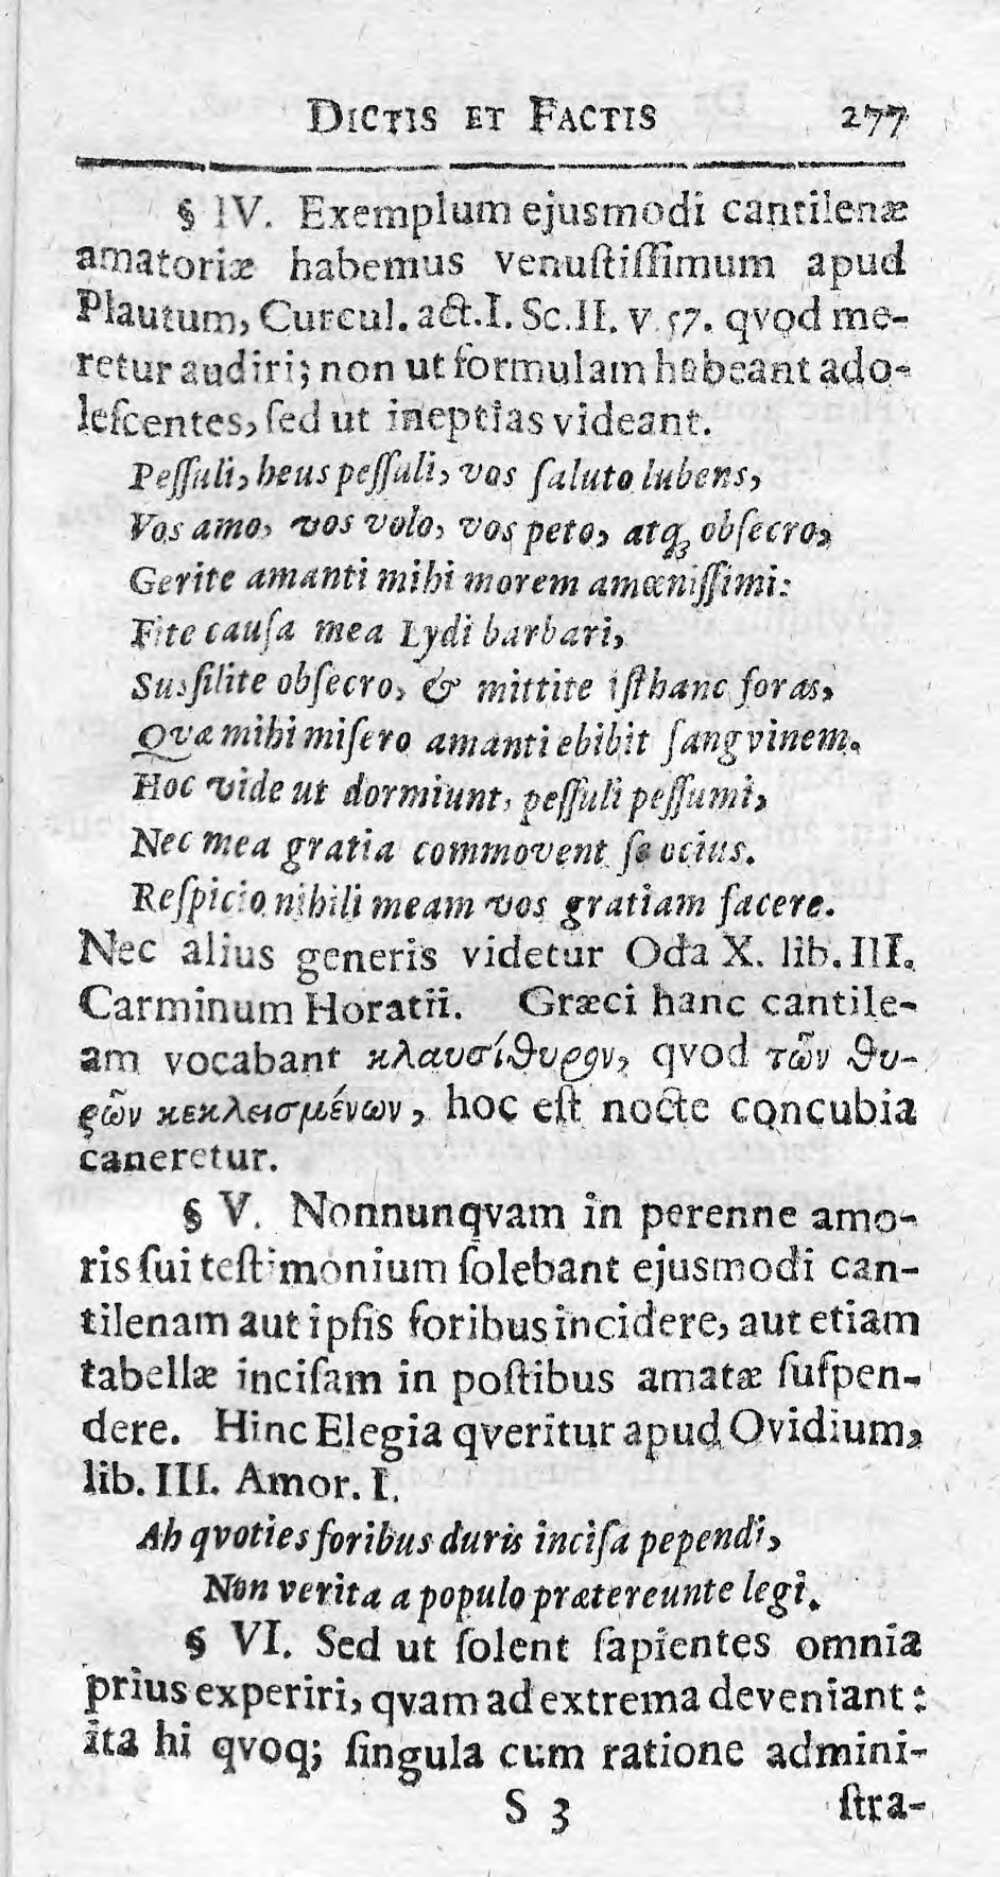 DICTIS ET FACTIS 277
§ IV. Exemplum ejusmodi cantilenæ
amatoriæ habemus venuſtiſſimum apud
Plautum, Curcul. act. I. Sc. II. v 57. qvod me-
retur audiri; non ut formulam habeant ado-
leſcentes, ſed ut ineptias videant.
Peſſuli, heus peſſuli, vos ſaluto lubens,
Vos amo, vos volo, vos peto, atq; obſecro,
Gerite amanti mihi morem amœniſſimi:
Fite cauſa mea Lydi barbari,
Susſilite obſecro, & mittite iſthanc foras,
Qvæ mihi miſero amanti ebibit ſangvinem.
Hoc vide ut dormiunt, peſſuli peſſumi,
Nec mea gratia commovent ſe ocius.
Reſpicio nihili meam vos gratiam facere.
Nec alius generis videtur Oda X. lib. III.
Carminum Horatii. Græci hanc cantile-
am vocabant κλαυσίθυρον, qvod τῶν θυ-
ρῶν κεκλεισμένων, hoc eſt nocte concubia
caneretur.
§ V. Nonnunqvam in perenne amo-
ris ſui teſtimonium ſolebant ejusmodi can-
tilenam aut ipſis foribus incidere, aut etiam
tabellæ inciſam in poſtibus amatæ ſuſpen-
dere. Hinc Elegia qveritur apud Ovidium,
lib. III. Amor. I.
Ah qvoties foribus duris inciſa pependi,
Non verita a populo prætereunte legi.
§ VI. Sed ut ſolent ſapientes omnia
prius experiri, qvam ad extrema deveniant:
ita hi qvoq; ſingula cum ratione admini-
S 3 ſtra-